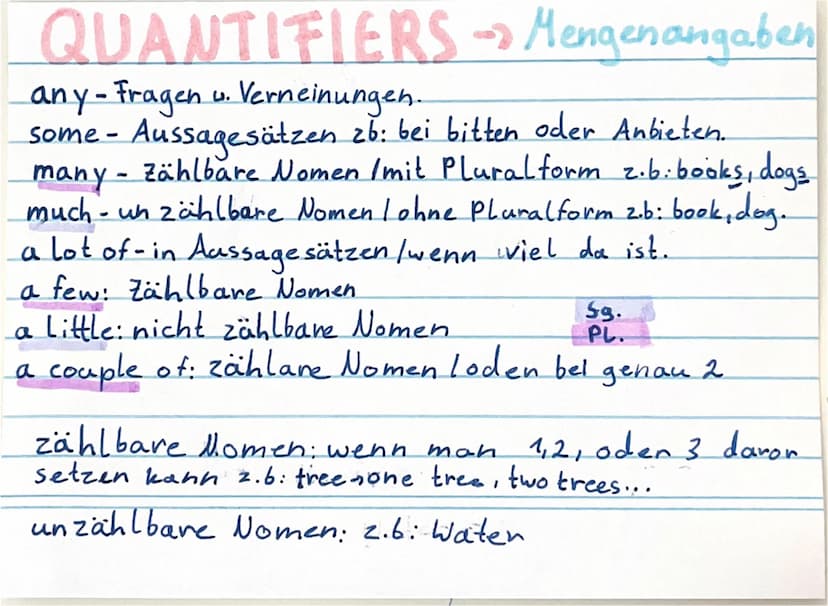 QUANTIFIERS → Mengenangaben
any - Fragen u. Verneinungen.
some - Aussagesätzen zb: bei bitten oder Anbieten.
many - Zählbare Nomen / mit Pluralform z.b: books, dogs
much - un zählbare Nomen / ohne Pluralform z.b: book, dog.
a lot of - in Aussagesätzen / wenn viel da ist.
a few: Zählbare Nomen
a little: nicht zählbare Nomen
Sg.
PL.
a couple of: zählare Nomen / oder bei genau 2
zählbare Nomen: wenn man 1, 2, oder 3 davor
setzen kann z.b: tree → one tree, two trees...
unzählbare Nomen: z.b: Water